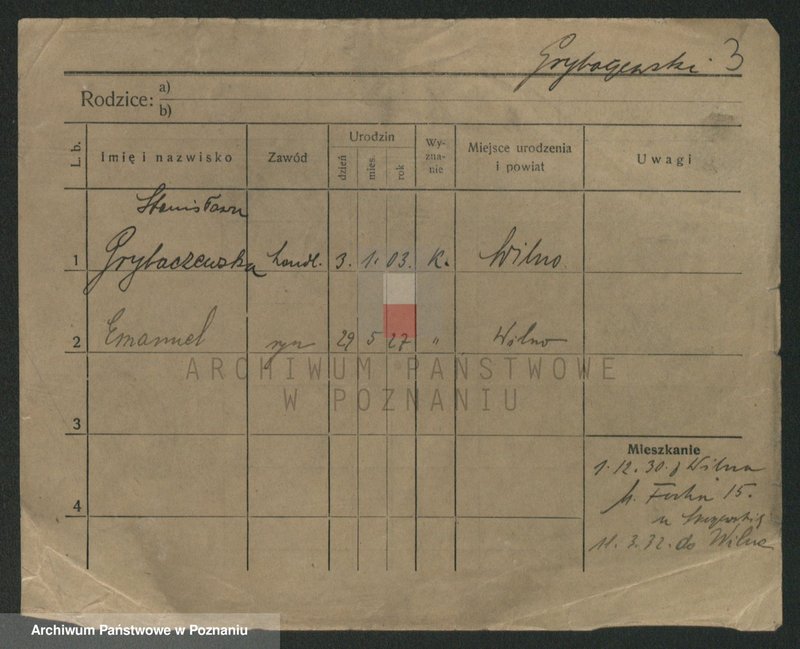 3
Rodzice: a)
b)
L. b. Imię i nazwisko Zawód Urodzin dzień mies. rok Wy-zna-nie Miejsce urodzenia i powiat Uwagi
Stanisława
1 Grybaczewska handl. 3. 1. 03. K. Wilno
2 Emanuel syn 29 5 27 " Wilno
ARCHIWUM PAŃSTWOWE
W POZNANIU
3
Mieszkanie
1.12.30. z Wilna
15.
4
u
11.3.32. do Wilna
Archiwum Państwowe w Poznaniu